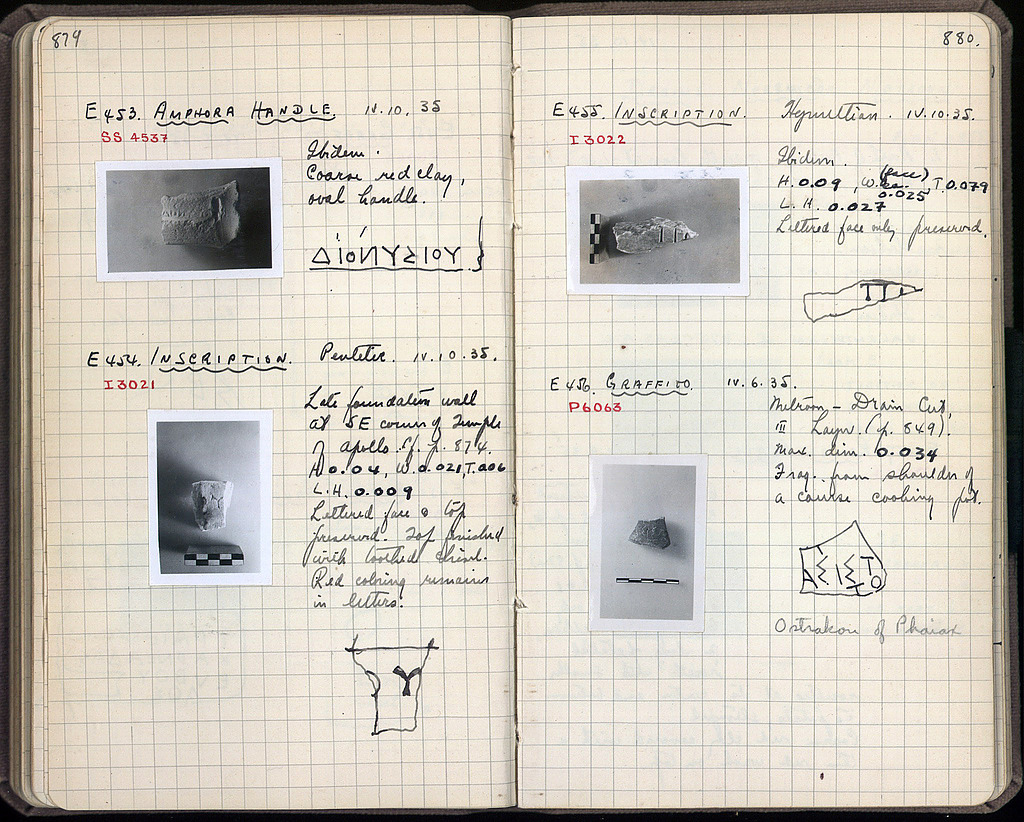 879
E 453. AMPHORA HANDLE. IV.10.35
SS 4537
Ibidem.
Coarse red clay,
oval handle.
ΔΙΟΝΥΣΙΟΥ
E 454. INSCRIPTION. Pentelic. IV.10.35.
I 3021
Late foundation wall
at SE corner of Temple
of Apollo. Cf. p. 874.
H 0.04, W. 0.021, T. 0.06
L.H. 0.009
Lettered face & top
preserved. Top finished
with toothed chisel.
Red coloring remains
in letters.
Υ
880.
E 455. INSCRIPTION. Hymettian. IV.10.35.
I 3022
Ibidem.
(face)
H. 0.09, W. 0.025, T. 0.079
L.H. 0.027
Lettered face only preserved.
E 456. GRAFFITO. IV.6.35.
P 6063
Metroon – Drain Cut,
III Layer. (p. 849).
Max. dim. 0.034
Frag. from shoulder of
a coarse cooking pot.
Ostrakon of Phaiax